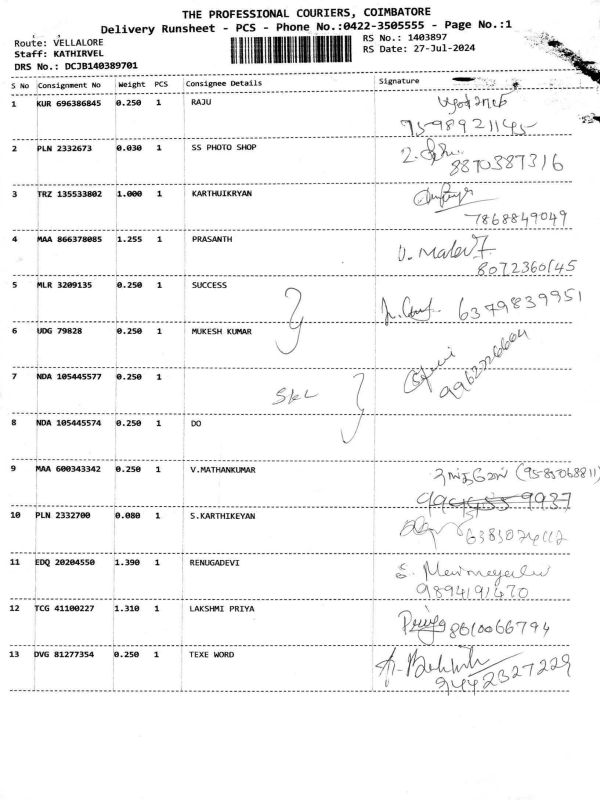 THE PROFESSIONAL COURIERS, COIMBATORE
Delivery Runsheet - PCS - Phone No.:0422-3505555 - Page No.:1
Route: VELLALORE
RS No.: 1403897
Staff: KATHIRVEL
RS Date: 27-Jul-2024
DRS No.: DCJB140389701
S No Consignment No Weight PCS Consignee Details Signature
1 KUR 696386845 0.250 1 RAJU
9598921145
2 PLN 2332673 0.030 1 SS PHOTO SHOP
8870387316
3 TRZ 135533802 1.000 1 KARTHUIKRYAN
7868849049
4 MAA 866378085 1.255 1 PRASANTH
8072360145
5 MLR 3209135 0.250 1 SUCCESS 6379839951
6 UDG 79828 0.250 1 MUKESH KUMAR
7 NDA 105445577 0.250 1
9962326604
SKL
8 NDA 105445574 0.250 1 DO
9 MAA 600343342 0.250 1 V.MATHANKUMAR (9585068811)
10 PLN 2332700 0.080 1 S.KARTHIKEYAN
11 EDQ 20204550 1.390 1 RENUGADEVI
9894191470
12 TCG 41100227 1.310 1 LAKSHMI PRIYA
Priya 8610066794
13 DVG 81277354 0.250 1 TEXE WORD
9442327229